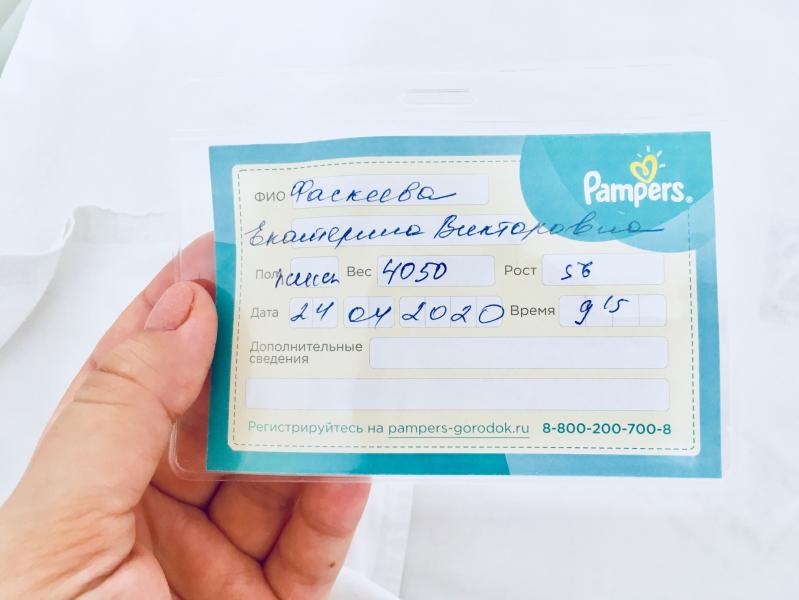 Pampers®
ФИО Фаскеева
Екатерина Викторовна
Пол Вес 4050 Рост 56
Дата 24 04 2020 Время 9 15
Дополнительные
сведения
Регистрируйтесь на pampers-gorodok.ru 8-800-200-700-8